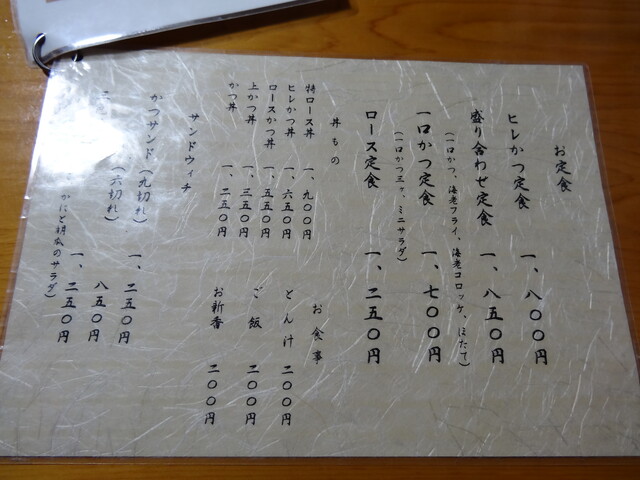 お定食
ヒレかつ定食 一、八〇〇円
盛り合わせ定食 一、八五〇円
(一口かつ、海老フライ、海老コロッケ、ほたて)
一口かつ定食 一、七〇〇円
(一口かつ三ヶ、ミニサラダ)
ロース定食 一、二五〇円
丼もの
特ロース丼 一、九〇〇円
ヒレかつ丼 一、六五〇円
ロースかつ丼 一、五五〇円
上かつ丼 一、三五〇円
かつ丼 一、二五〇円
お食事
とん汁 二〇〇円
ご飯 二〇〇円
お新香 二〇〇円
サンドウィチ
かつサンド(九切れ) 一、二五〇円
(六切れ) 八五〇円
一、二五〇円
かにと胡瓜のサラダ)